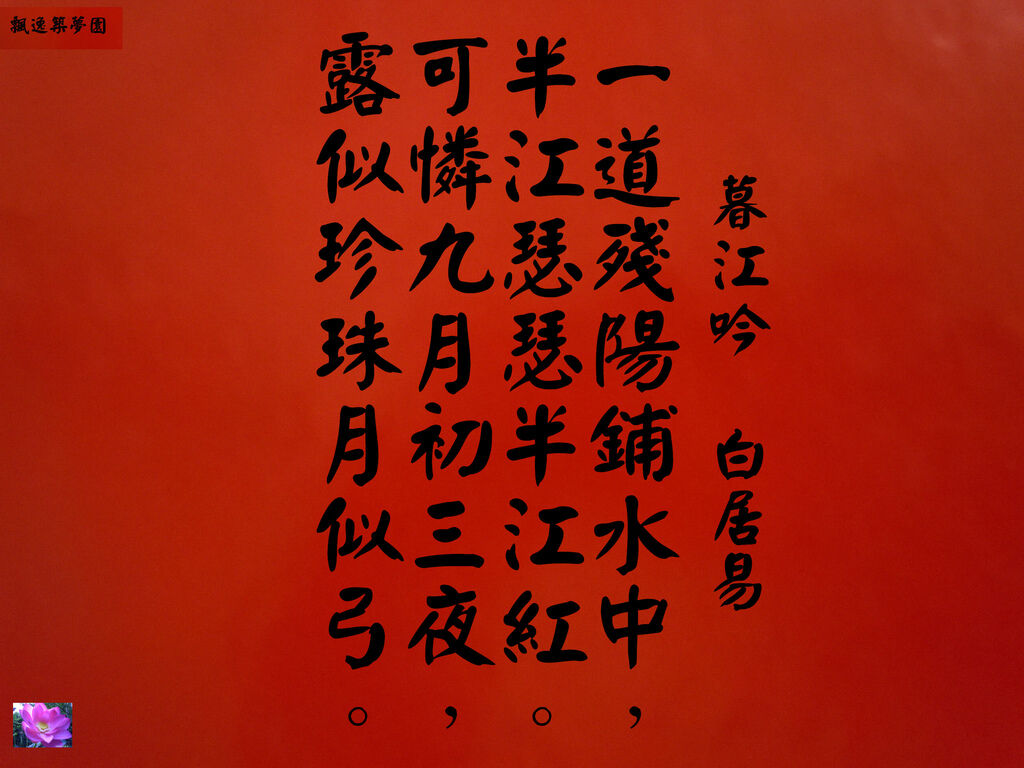 飄逸築夢園
暮江吟 白居易
一道殘陽鋪水中，
半江瑟瑟半江紅。
可憐九月初三夜，
露似珍珠月似弓。